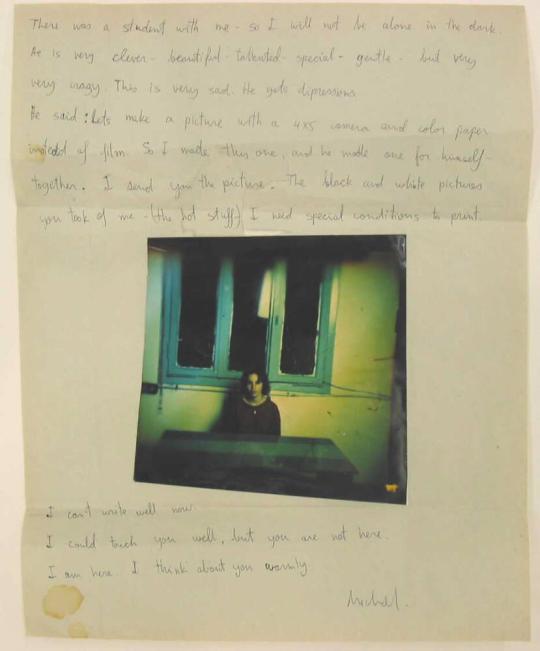 There was a student with me - so I will not be alone in the dark.
He is very clever - beautiful - talented - special - gentle - but very
very crazy. This is very sad. He gets dipressions
He said: Lets make a picture with a 4x5 camera and color paper
instead of film. So I made this one, and he made one for himself -
together. I send you the picture. The black and white pictures
you took of me - (the hot stuff) I need special conditions to print.
I can't write well now.
I could touch you well, but you are not here.
I am here. I think about you warmly.
Michal.